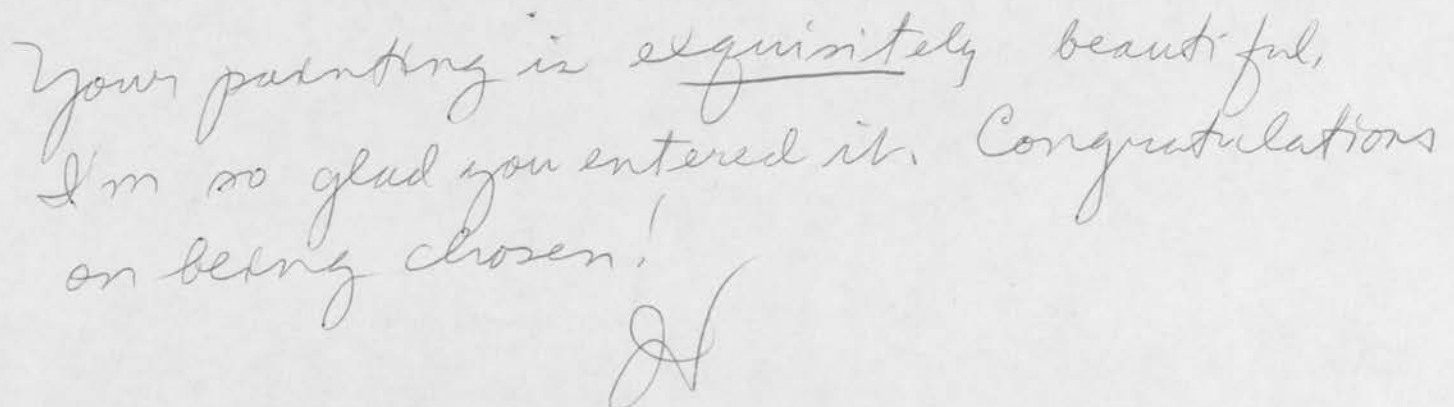 Your painting is exquisitely beautiful.
I'm so glad you entered it. Congratulations
on being chosen!